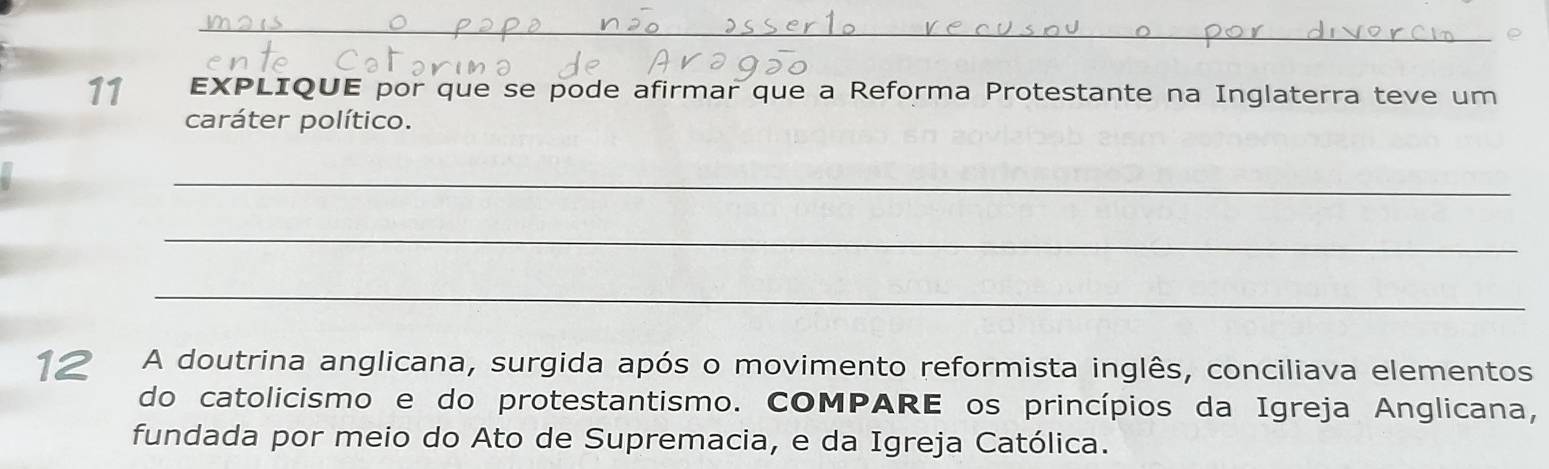 mais o papa não asserto recusou o por divorcio e
ente Catarina de Aragão
11 EXPLIQUE por que se pode afirmar que a Reforma Protestante na Inglaterra teve um
caráter político.
12 A doutrina anglicana, surgida após o movimento reformista inglês, conciliava elementos
do catolicismo e do protestantismo. COMPARE os princípios da Igreja Anglicana,
fundada por meio do Ato de Supremacia, e da Igreja Católica.